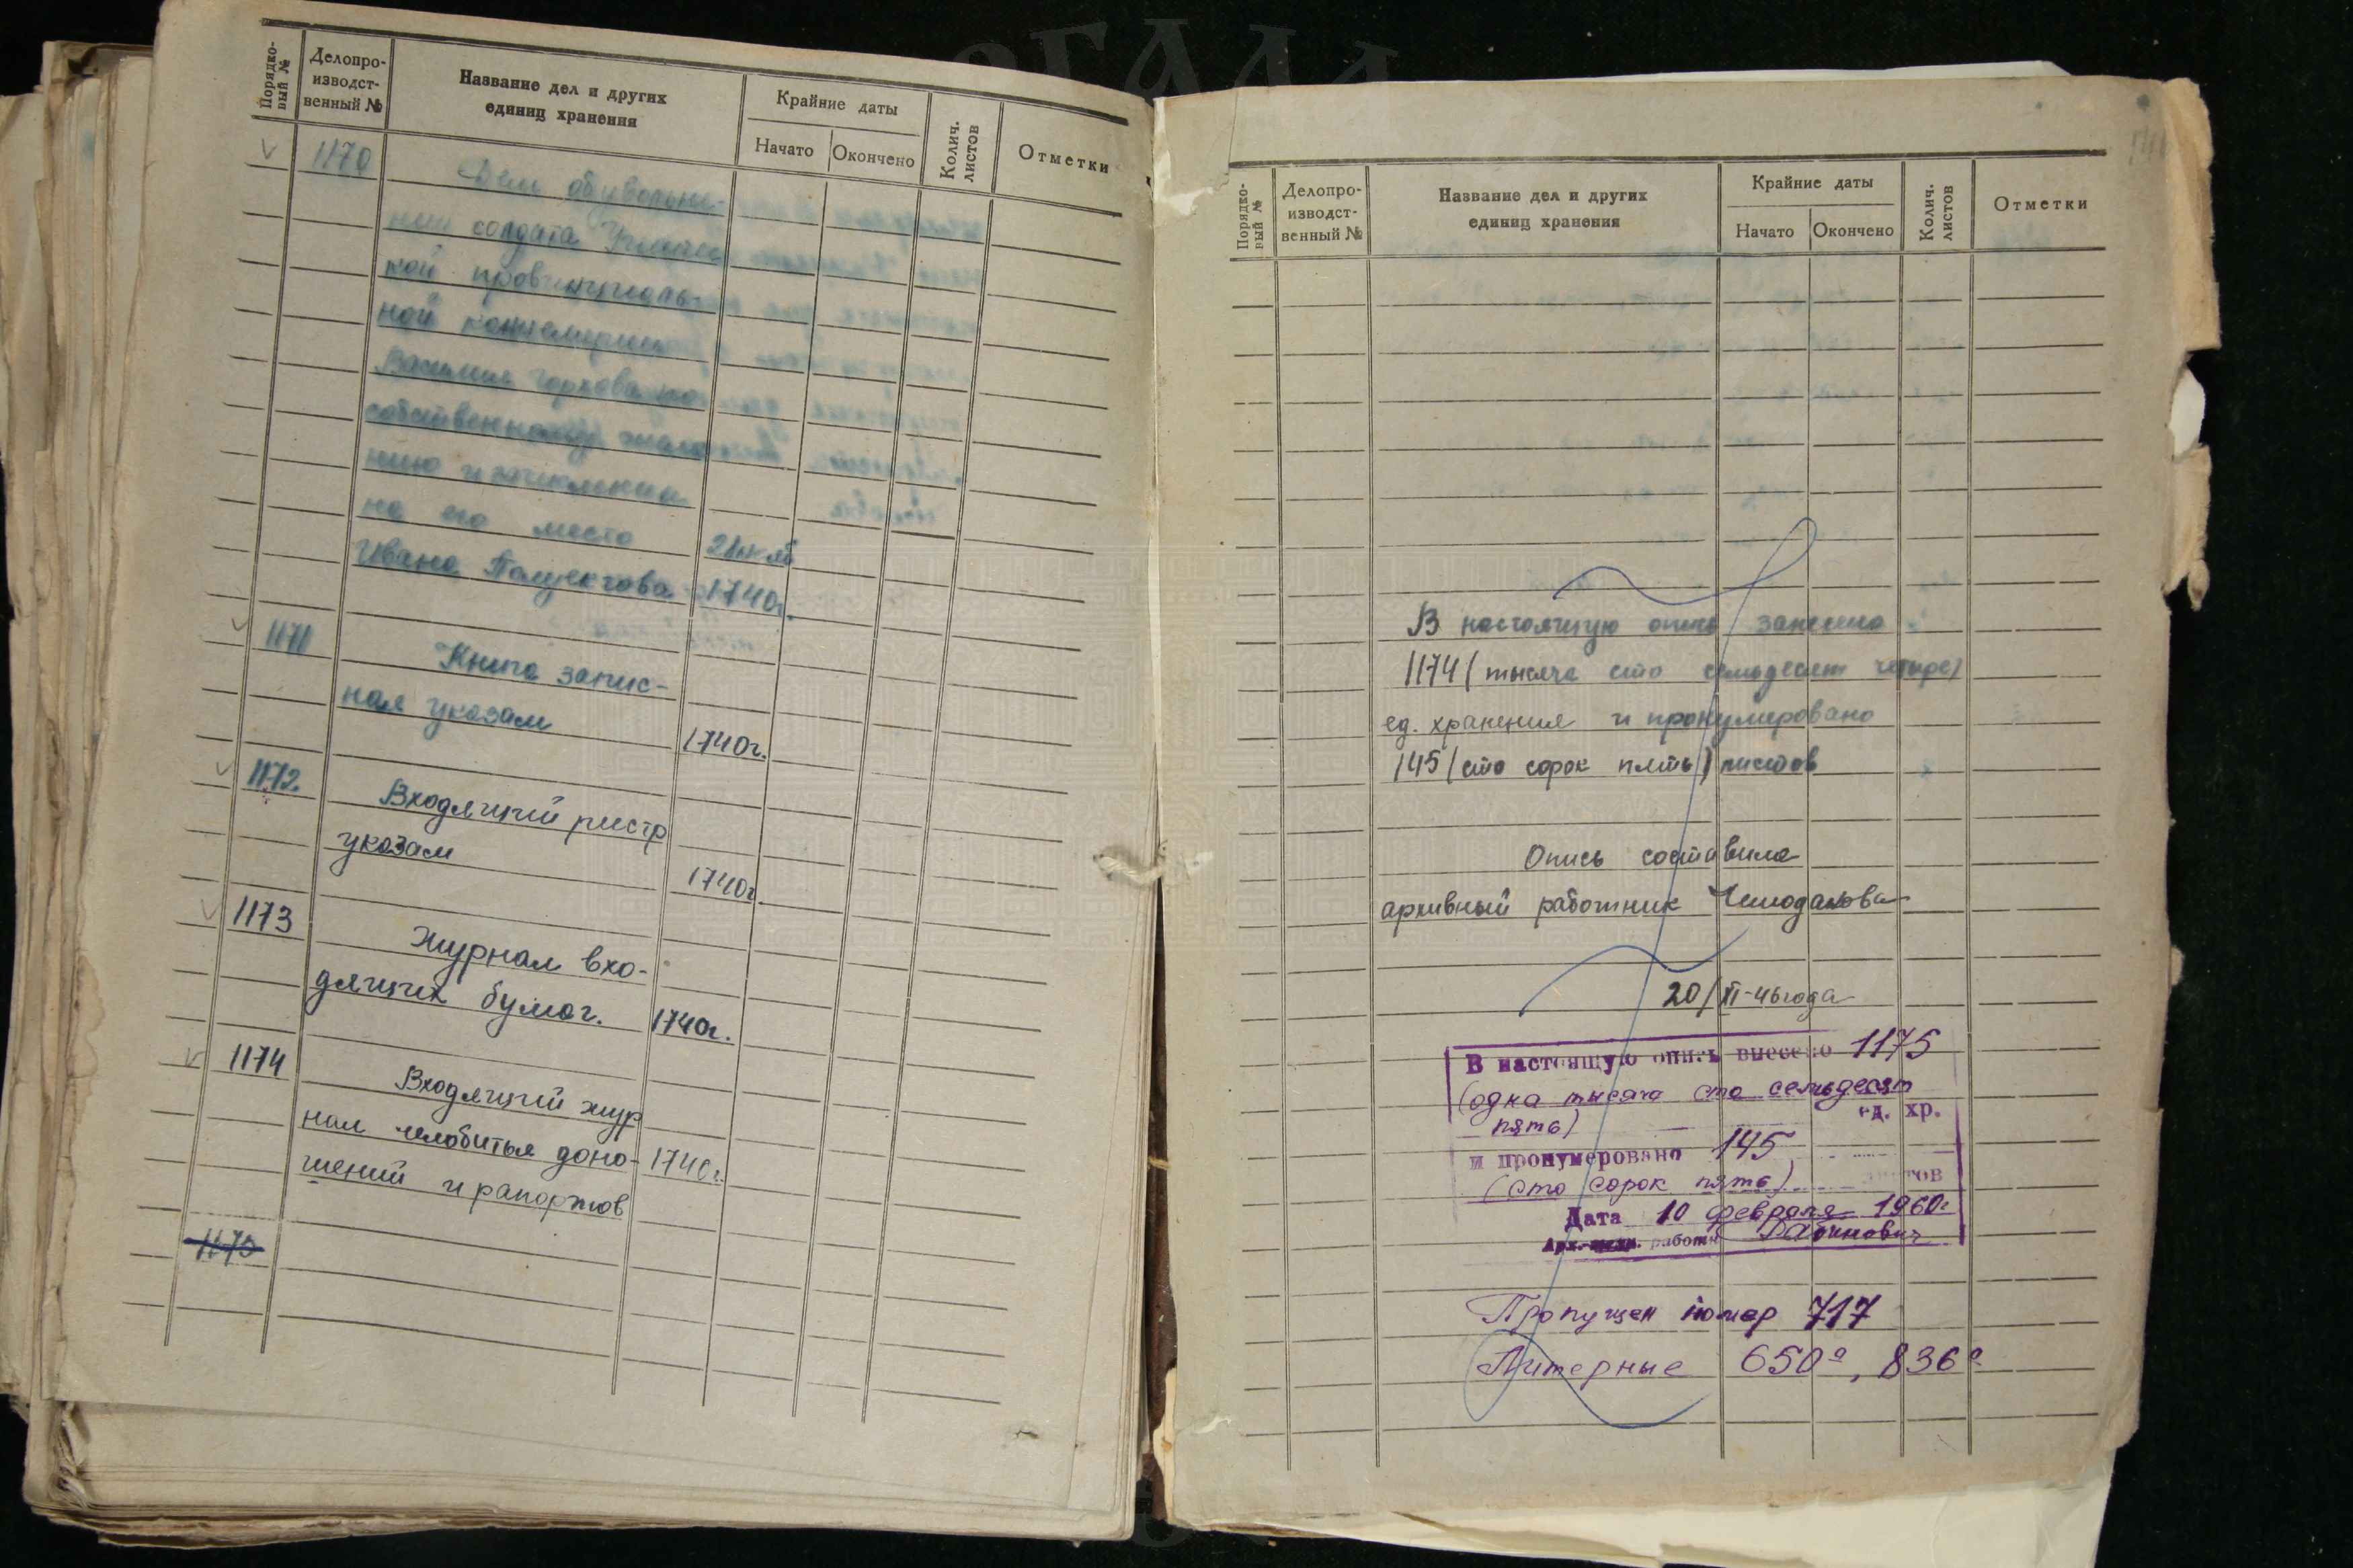 Порядко-
вый №
Делопро-
изводст-
венный №
Название дел и других
единиц хранения
Крайние даты
Начато
Окончено
Колич.
листов
Отметки
1170
Дело об увольне-
нии солдата
кой провинциаль-
ной канцелярии
Василия Горхова по
собственному
нию и
на его место
Ивана 1740г.
1171
Книга запис-
ная указам
1740г.
1172
Входящий реестр
указам
1740г.
1173
Журнал вхо-
дящих бумаг. 1740г.
1174
Входящий жур
нал челобитья доно- 1740г.
шений и рапортов
1175
Порядко-
вый №
Делопро-
изводст-
венный №
Название дел и других
единиц хранения
Крайние даты
Начато
Окончено
Колич.
листов
Отметки
В настоящую опись занесено
1174 (тысяча сто семьдесят четыре)
ед. хранения и пронумеровано
145 (сто сорок пять) листов
Опись составила
архивный работник Чемоданова
20/XI-46 года
В настоящую опись внесено 1175
(одна тысяча сто семьдесят
пять) ед. хр.
и пронумеровано 145
(сто сорок пять) листов
Дата 10 февраля 1960г
Арх.-техн. работн Рабинович
Пропущен номер 717
Литерные 650а, 836а